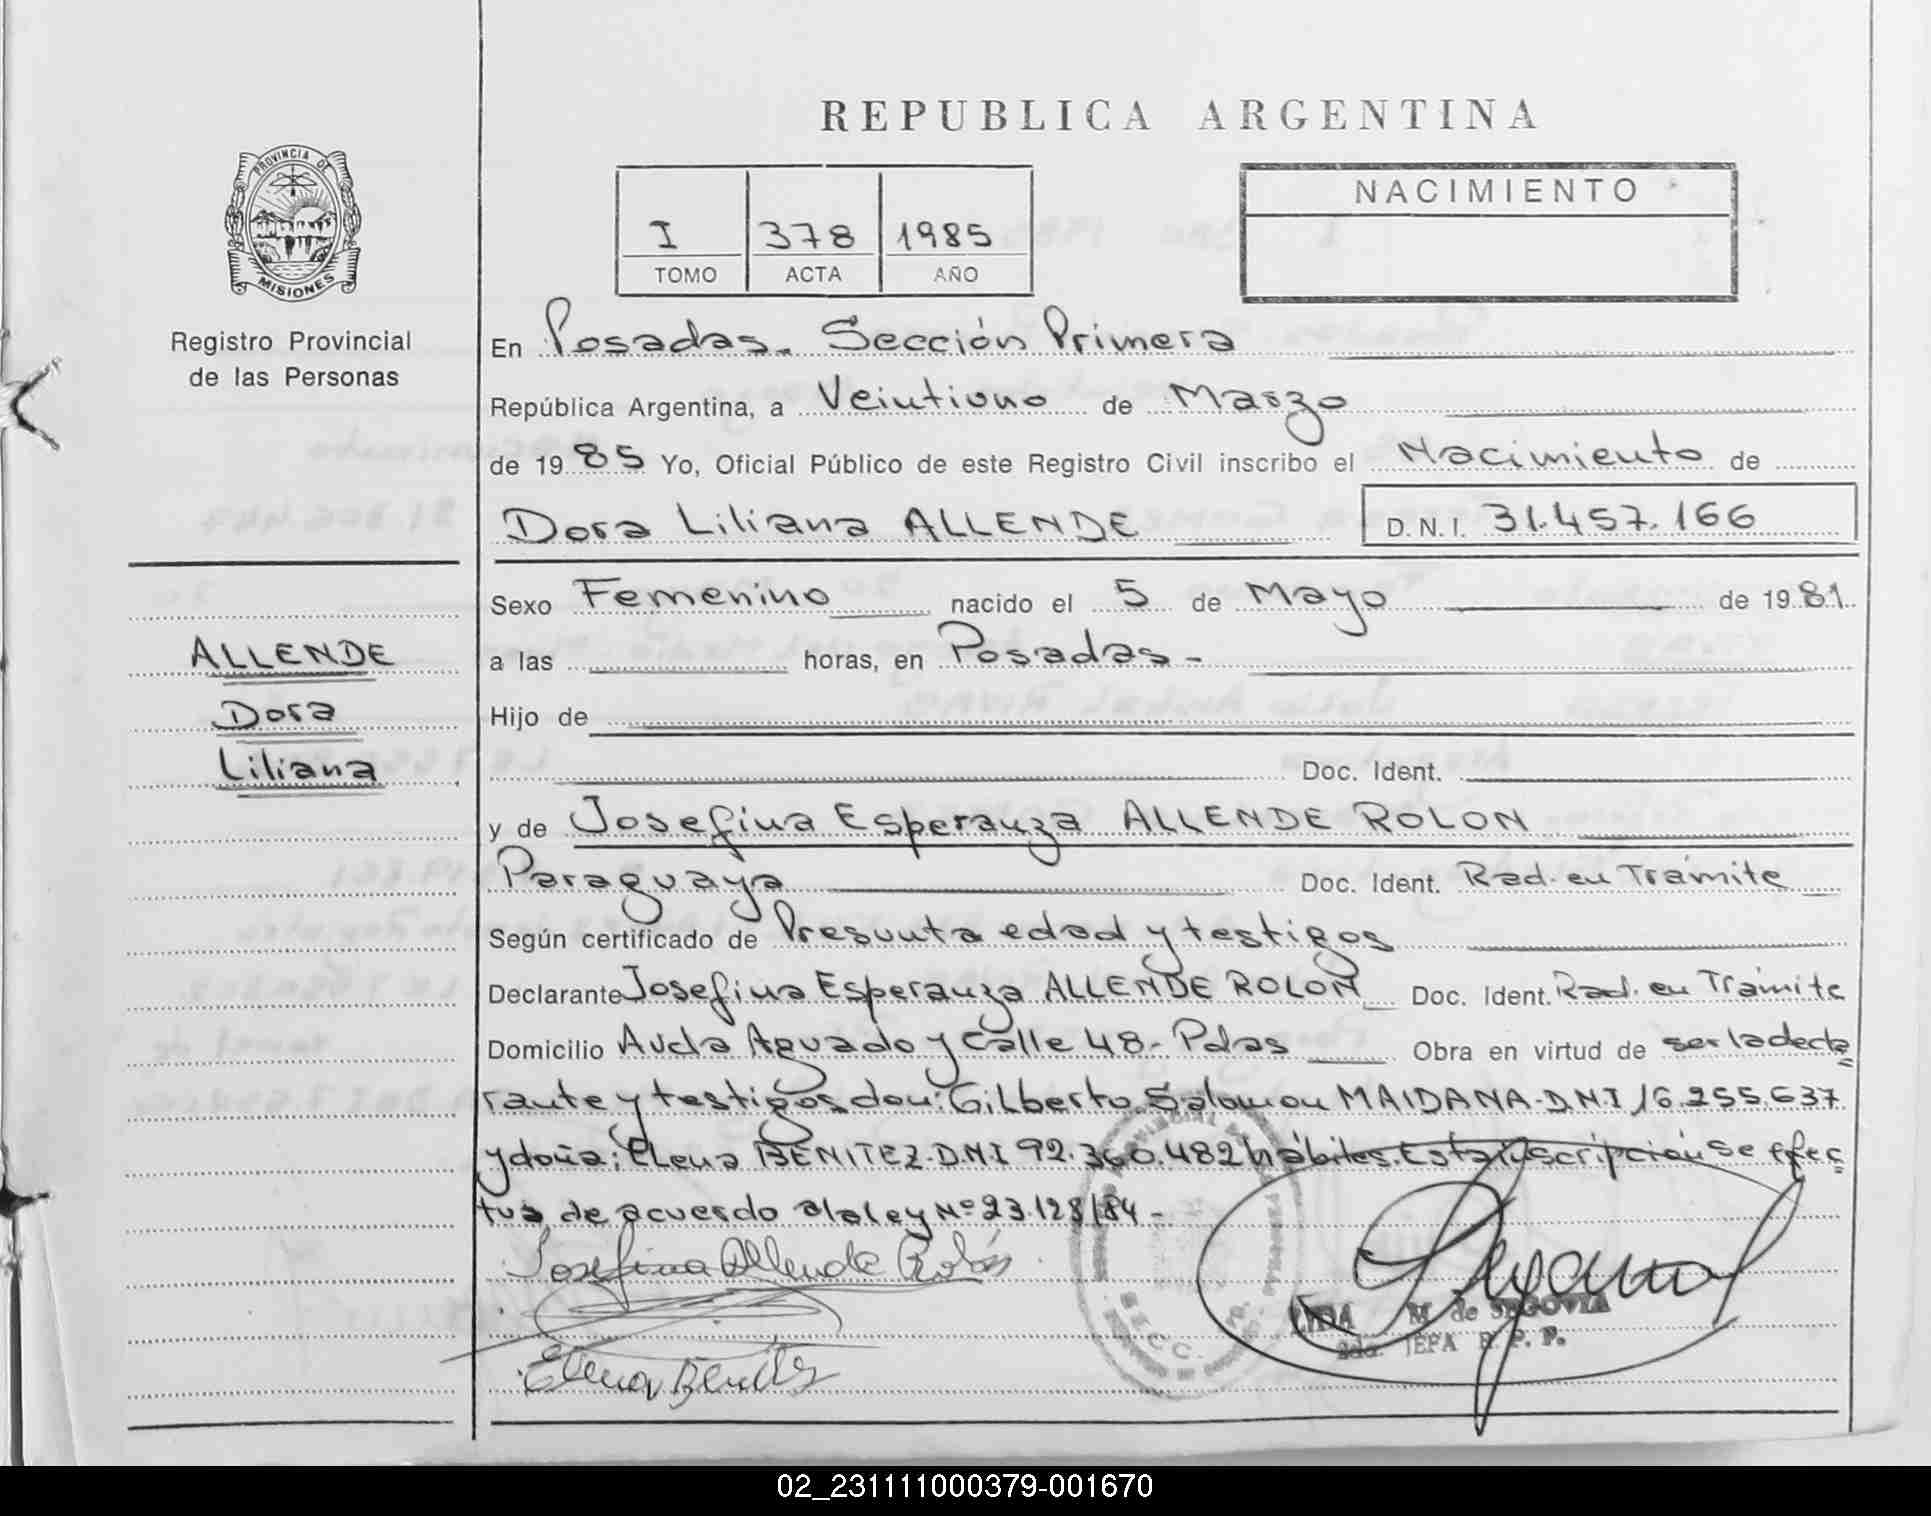 REPUBLICA ARGENTINA
PROVINCIA DE
MISIONES
Registro Provincial
de las Personas
I 378 1985
TOMO ACTA AÑO
NACIMIENTO
En Posadas. Sección Primera
República Argentina, a Veintiuno de Marzo
de 1985 Yo, Oficial Público de este Registro Civil inscribo el Nacimiento de
Dora Liliana ALLENDE D.N.I. 31.457.166
Sexo Femenino nacido el 5 de Mayo de 1981
ALLENDE
a las horas, en Posadas -
Dora
Hijo de
Liliana
Doc. Ident.
y de Josefina Esperanza ALLENDE ROLON
Paraguaya Doc. Ident. Rad. en Trámite
Según certificado de Presunta edad y testigos
Declarante Josefina Esperanza ALLENDE ROLON Doc. Ident. Rad. en Trámite
Domicilio Avda Aguado y Calle 48- Pdas Obra en virtud de ser la decla
rante y testigos don: Gilberto Salomon MAIDANA-DNI 16.255.637
y doña: Elena BENITEZ-DNI 92.360.482 hábiles. Esta inscripción se efec
tua de acuerdo a la ley Nº 23.128/84 -
Josefina Allende Rolón
Elena Benitez
M. de SEGOVIA
2da. JEFA R. P. P.
02_231111000379-001670